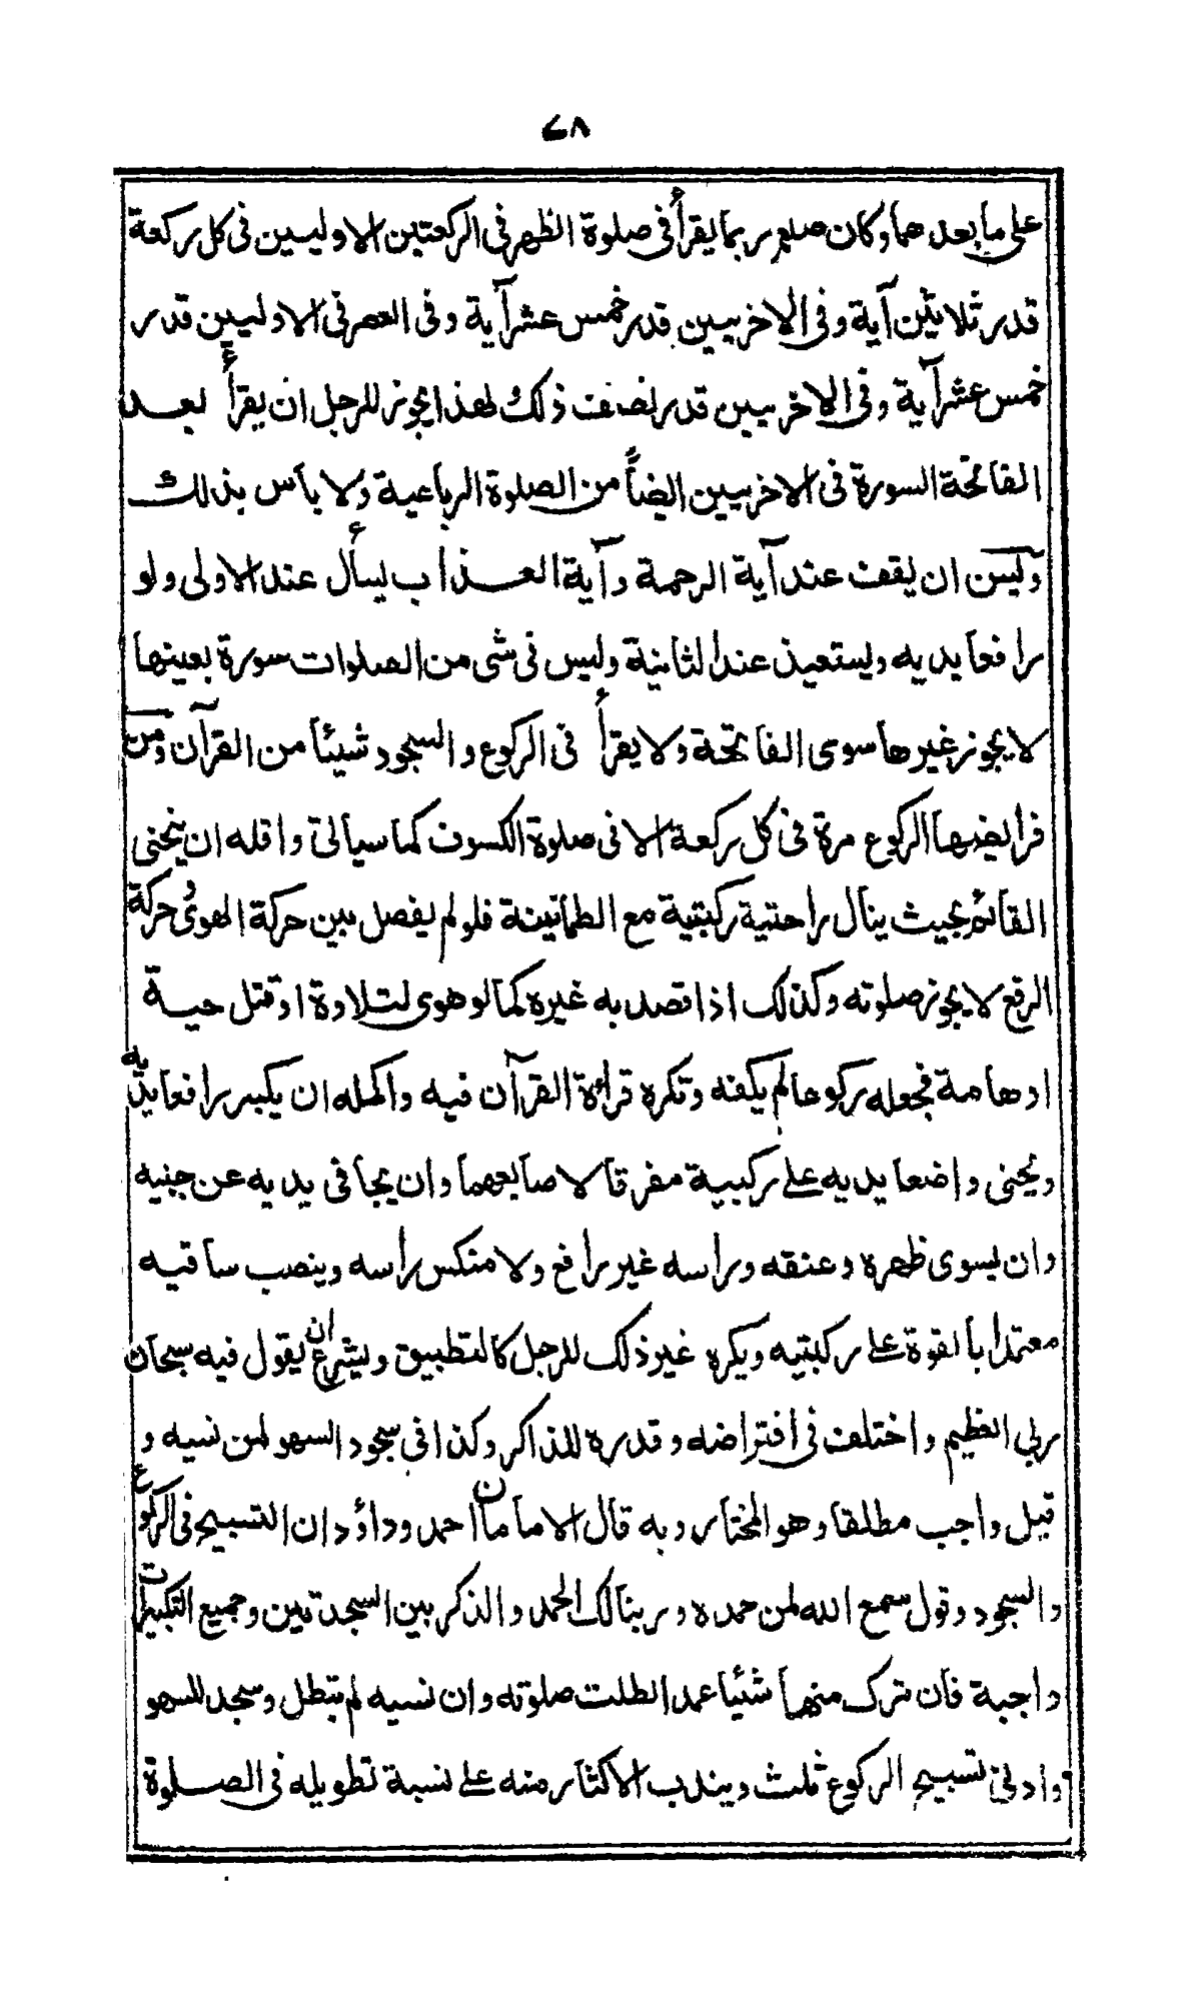 ٦٨
على ما بعدهما وكان صلعم ربما يقرأ فى صلوة الظهر فى الركعتين الاوليين فى كل ركعة
قدر ثلاثين آية وفى الاخريين قدر خمس عشر آية وفى العصر فى الاوليين قدر
خمس عشر آية وفى الاخريين قدر نصف ذلك لهذا يجوز للرجل ان يقرأ بعد
الفاتحة السورة فى الاخريين ايضاً من الصلوة الرباعية ولا بأس بذلك
وليسن ان يقف عند آية الرحمة وآية العذاب ليسأل عند الاولى ولو
رافعا يديه وليستعيذ عند الثانية وليس فى شى من الصلوات سورة بعينها
لا يجوز غيرها سوى الفاتحة ولا يقرأ فى الركوع والسجود شيئا من القرآن ومن
فرائضها الركوع مرة فى كل ركعة الا فى صلوة الكسوف كما سيأتى واقله ان ينحنى
القائم بحيث ينال راحتيه ركبتيه مع الطمانينة فلو لم يفصل بين حركة الهوى وحركة
الرفع لا يجوز صلوته وكذلك اذا قصد به غيره كما لو هوى لتلاوة او قتل حية
او هامة فجعله ركوعا لم يكفه وتكره قراءة القرآن فيه واكمله ان يكبر رافعا يديه
وينحنى واضعا يديه على ركبتيه مفرقا لاصابعهما وان يجافى يديه عن جنبيه
وان يسوى ظهره وعنقه وراسه غير رافع ولا منكس رأسه وينصب ساقيه
معتمدا بالقوة على ركبتيه ويكره غير ذلك للرجل كالتطبيق ويشرع ان يقول فيه سبحان
ربى العظيم واختلف فى افتراضه وقدره للذاكر وكذا فى سجود السهو لمن نسيه و
قيل واجب مطلقا وهو المختار وبه قال الامامان احمد وداؤد ان التسبيح فى الركوع
والسجود وقول سمع الله لمن حمده وربنا لك الحمد والذكر بين السجدتين وجميع التكبيرات
واجبة فان ترك منها شئيا عمدا بطلت صلوته وان نسيه لم تبطل وسجد للسهو
وادنى تسبيح الركوع ثلث ويندب الاكثار منه على نسبة تطويله فى الصلوة